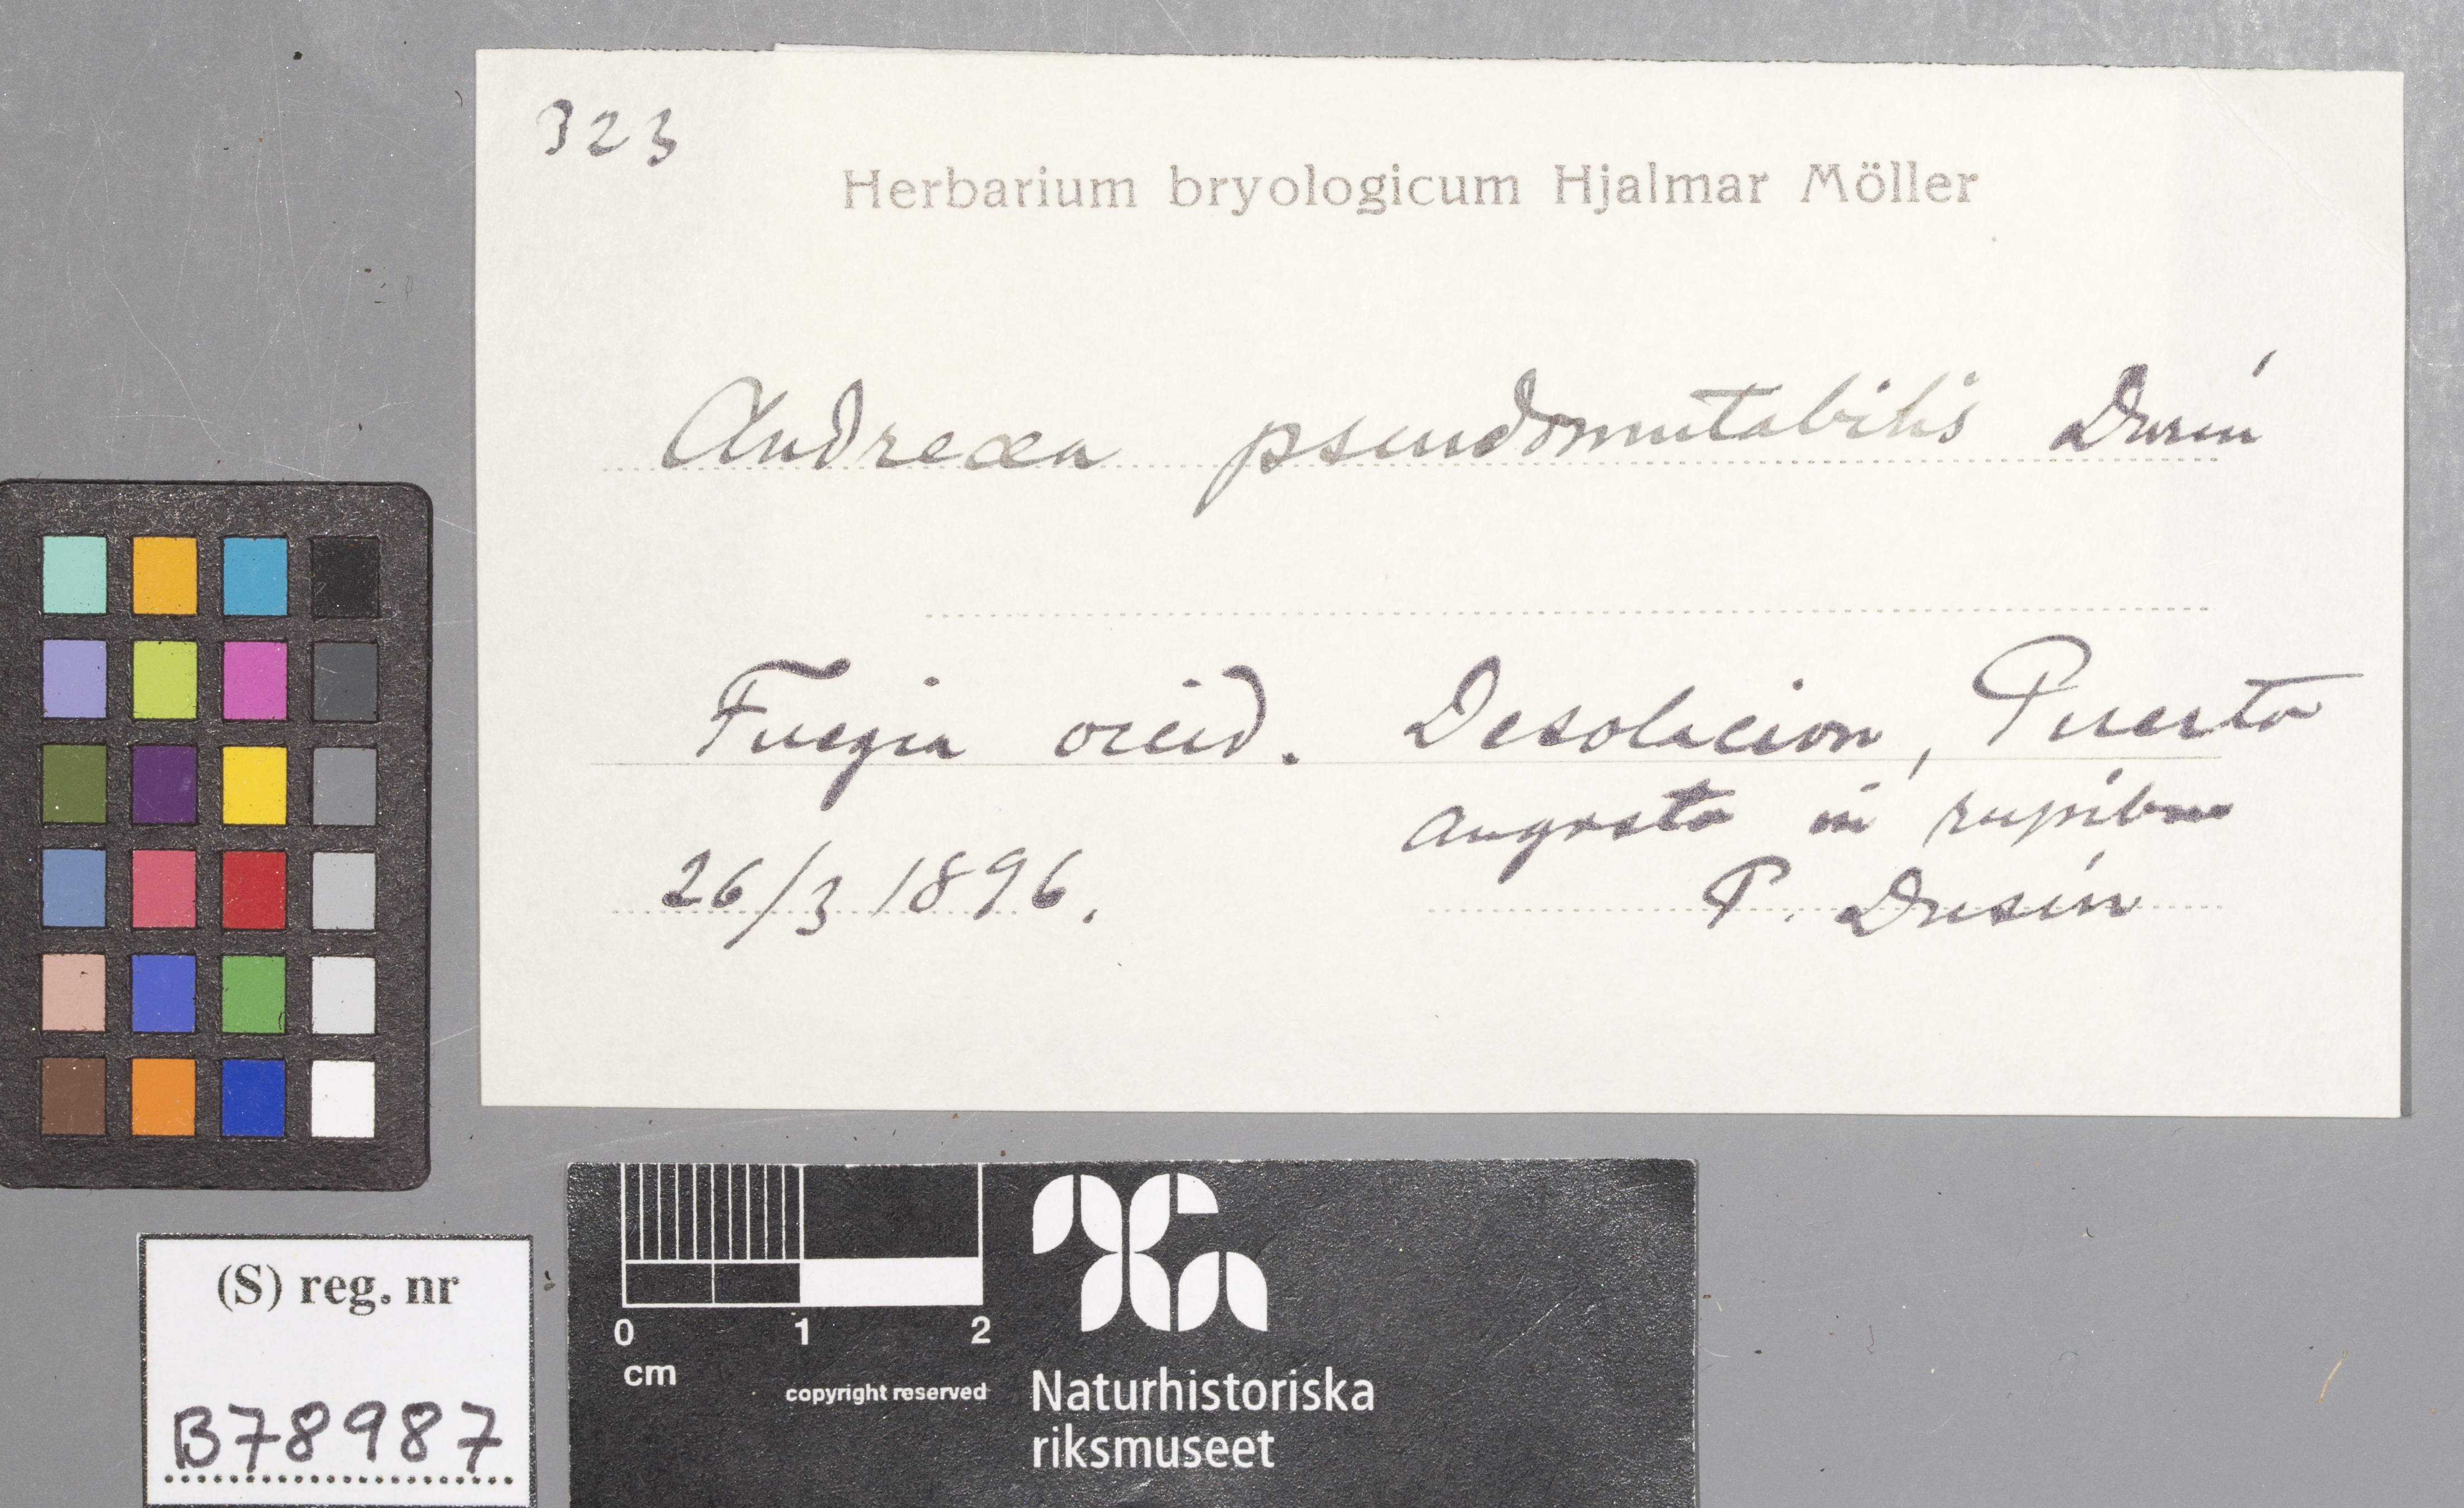 323
Herbarium bryologicum Hjalmar Möller
Andreæa pseudomutabilis Dusén
Fuegia occid. Desolacion, Puerto
angosto in rupibus
26/3 1896.
P. Dusén
(S) reg. nr
B78987
0 1 2
cm
copyright reserved
Naturhistoriska
riksmuseet